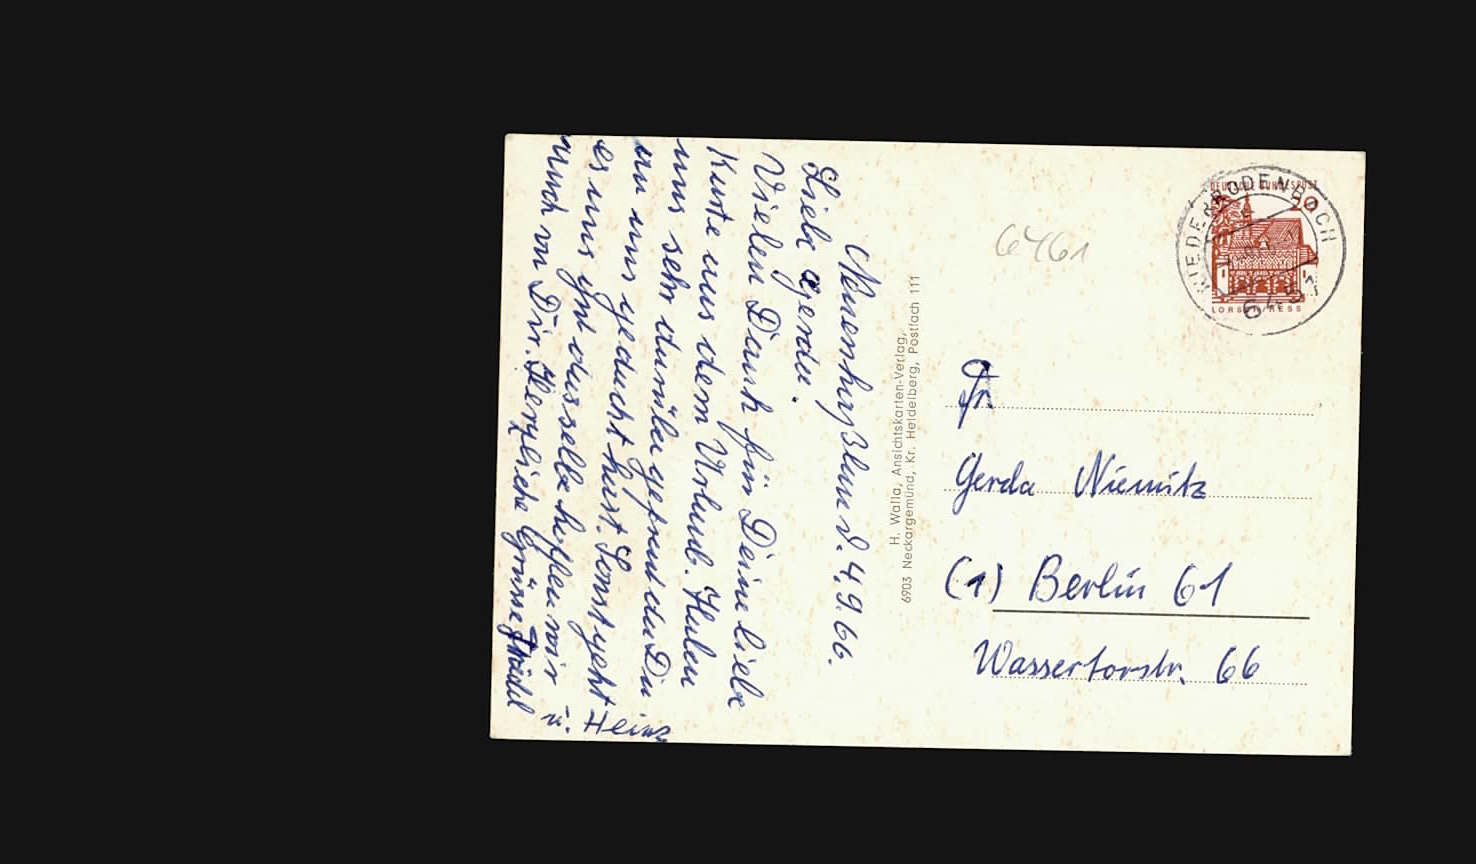 Neuenhaßlau d. 4.9.66.
Liebe Gerda.
Vielen Dank für Deine liebe
Karte aus dem Urlaub. Haben
uns sehr darüber gefreut da Du
an uns gedacht hast. Sonst geht
es uns gut dasselbe hoffen wir
auch von Dir. Herzliche Grüsse Friedel
u. Heinz
H. Walla, Ansichtskarten-Verlag,
6903 Neckargemünd, Kr. Heidelberg, Postfach 111
6461
DEUTSCHE BUNDESPOST
20
LORSCH/HESS
NIEDERRODENBACH
Fr
Gerda Niemitz
(1) Berlin 61
Wassertorstr. 66